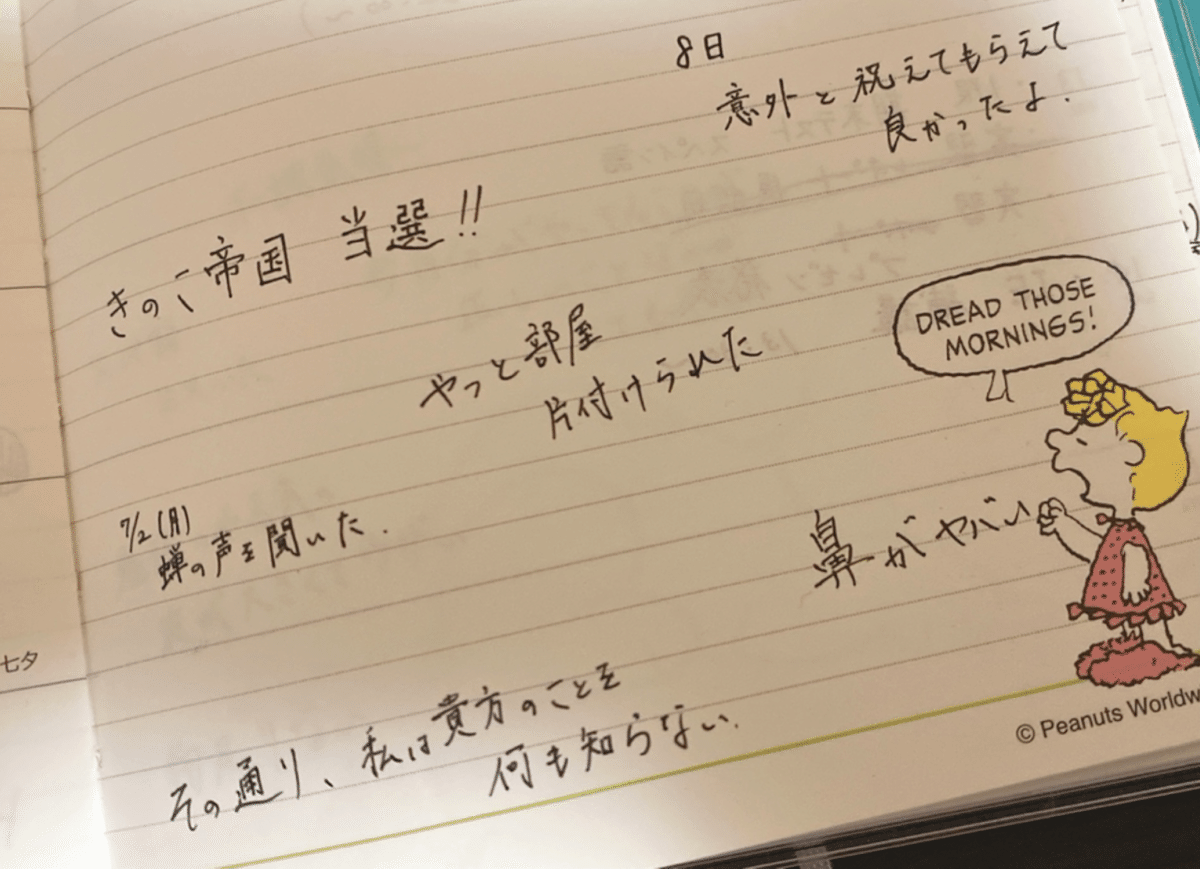 8日
意外と祝えてもらえて
良かったよ.
きのこ帝国 当選!!
DREAD THOSE
MORNINGS!
やっと部屋
片付けられた
7/2(月)
蝉の声を聞いた.
鼻がヤバい
七夕
その通り、私は貴方のことを
何も知らない.
© Peanuts Worldw